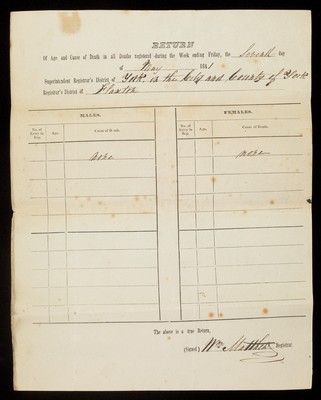 RETURN
Of Age and Cause of Death in all Deaths registered during the Week ending Friday, the Seventh day
of May 1841
Superintendent Registrar's District of York in the City and County of York
Registrar's District of Flaxton
MALES. FEMALES.
No. of Entry in Reg. Age. Cause of Death. No. of Entry in Reg. Age. Cause of Death.
none none
The above is a true Return,
(Signed) Wm Matthew Registrar.